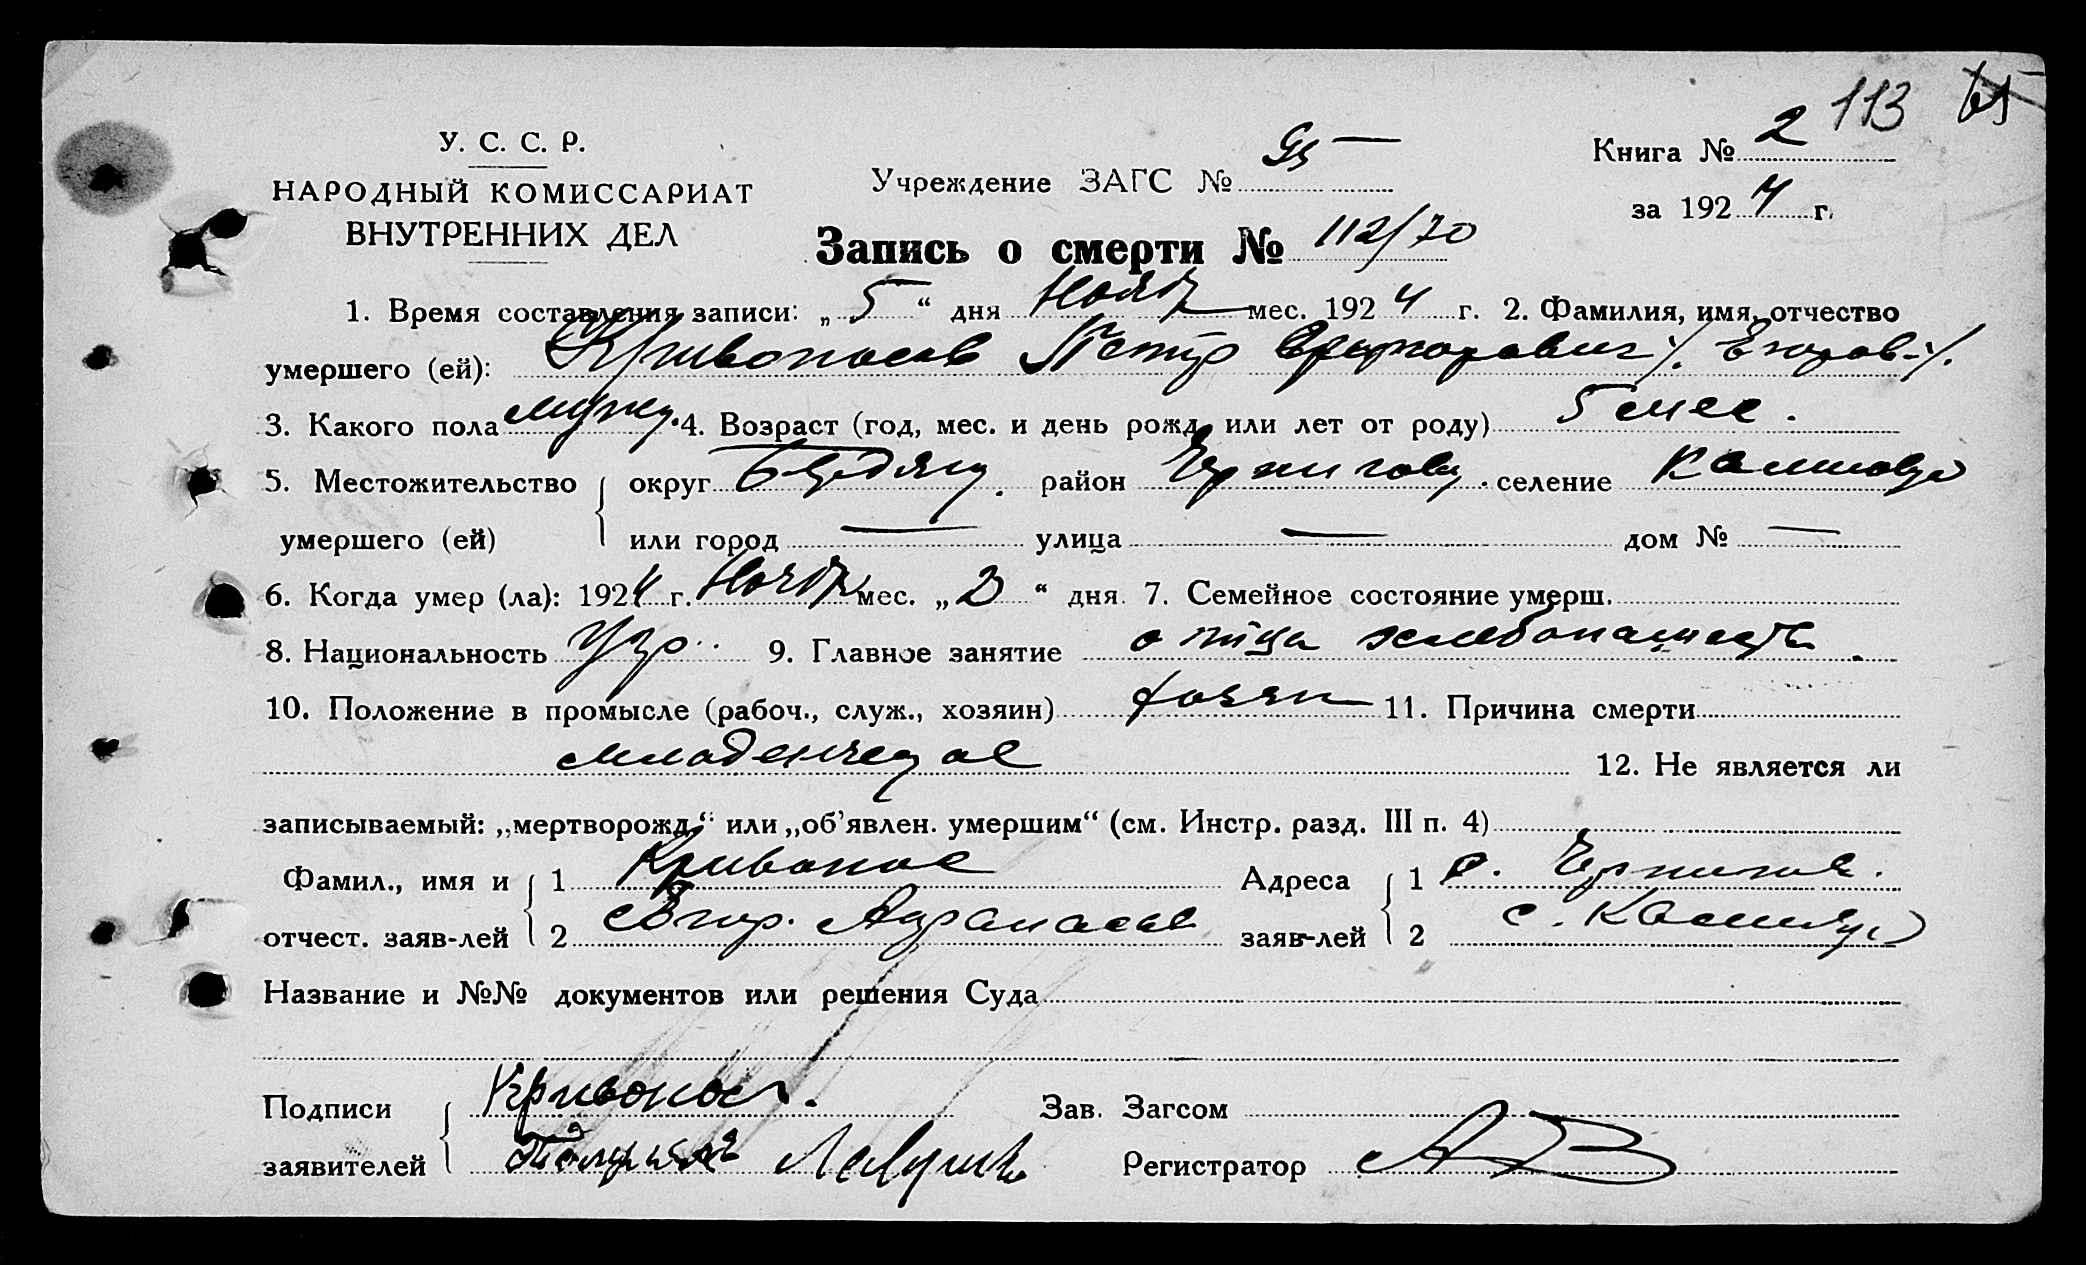 113
У. С. С. Р.
НАРОДНЫЙ КОМИССАРИАТ
ВНУТРЕННИХ ДЕЛ
Учреждение ЗАГС № 95 —
Книга № 2
за 1924 г.
Запись о смерти № 112/70
1. Время составления записи: „ 5 “ дня Нояб мес. 1924 г. 2. Фамилия, имя, отчество
умершего (ей): Кривоносов Петр Егоров
3. Какого пола мужс. 4. Возраст (год, мес. и день рожд. или лет от роду) 5 мес.
5. Местожительство округ район селение
умершего (ей) или город — улица — дом № —
6. Когда умер (ла): 1924 г. Нояб мес. „ 2 “ дня. 7. Семейное состояние умерш.
8. Национальность Укр. 9. Главное занятие отца хлебопашество
10. Положение в промысле (рабоч., служ., хозяин) хозяин 11. Причина смерти
младенческая 12. Не является ли
записываемый: „мертворожд.“ или „об’явлен. умершим“ (см. Инстр. разд. III п. 4)
Фамил., имя и 1 Кривонос Адреса 1 с.
отчест. заяв-лей 2 заяв-лей 2 с.
Название и №№ документов или решения Суда
Подписи Кривонос. Зав. Загсом
заявителей Регистратор